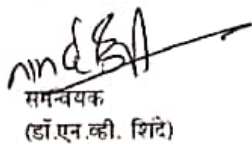 समन्वयक
(डॉ.एन.व्ही. शिंदे)